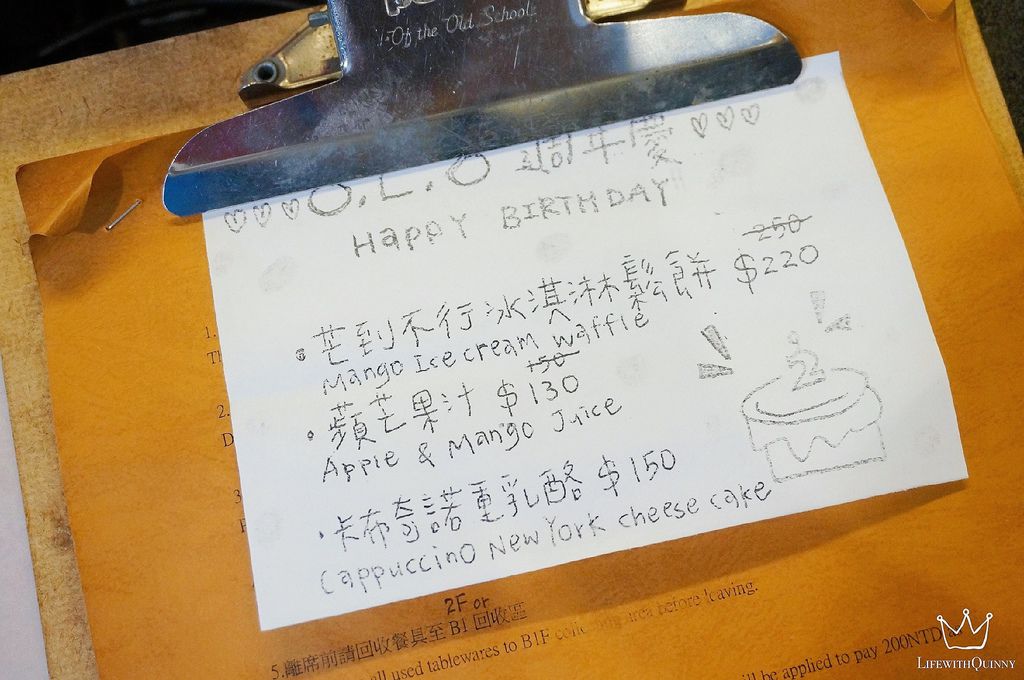 Of the Old School
O.L.O 2週年慶
HAPPY BIRTHDAY
250
芒到不行冰淇淋鬆餅 $220
Mango Ice cream waffle
150
蘋芒果汁 $130
Apple & Mango Juice
卡布奇諾重乳酪 $150
Cappuccino New York cheese cake
2
1.
Th
2.
D
3
2F or
5.離席前請回收餐具至B1回收區
all used tablewares to B1F area before leaving.
be applied to pay 200NTD
LIFEWITHQUINNY